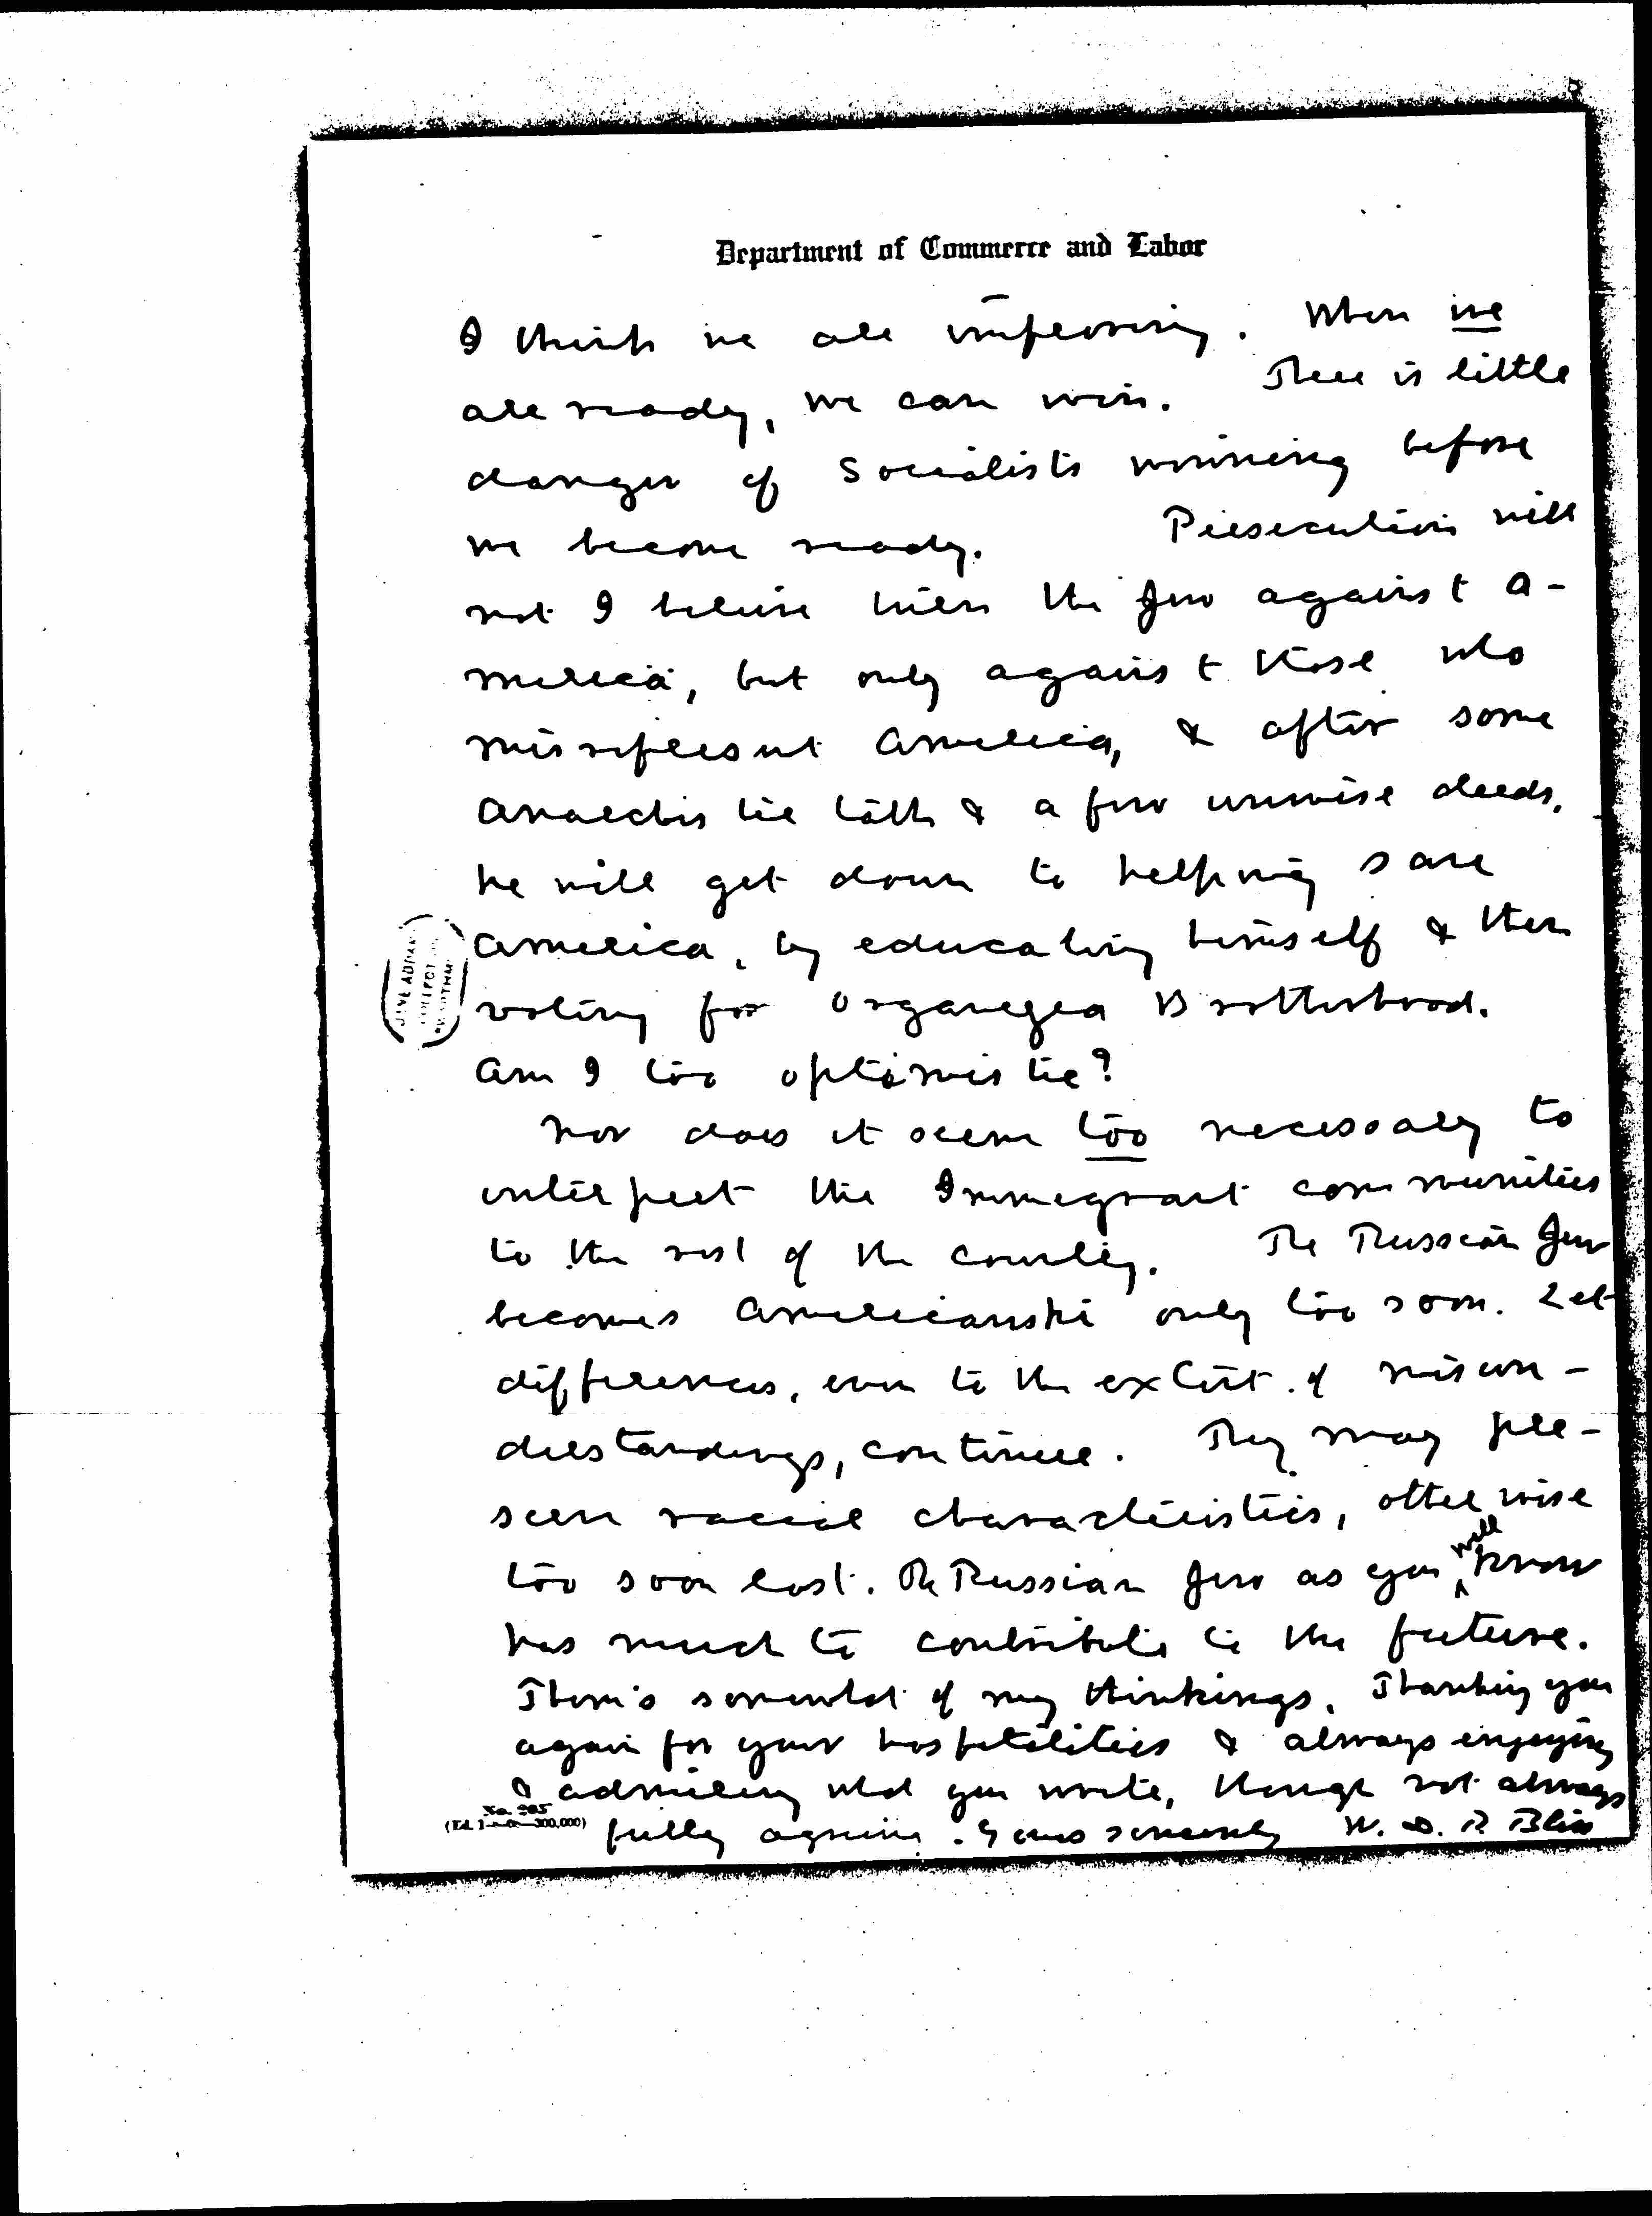 Department of Commerce and Labor
I think we are improving. When we
are ready, we can win. There is little
danger of Socialists winning before
we become ready. Persecution will
not I believe turn the Jew against A-
merica, but only against those who
misrepresent America, & after some
anarchistic talk & a few unwise deeds,
he will get down to helping save
America, by educating himself & then
voting for Organized Brotherhood.
Am I too optimistic?
Nor does it seem too necessary to
interpret the Immigrant communities
to the rest of the country. The Russian Jew
becomes Americanski only too soon. Let
differences, even to the extent of misun-
derstandings, continue. They may pre-
serve racial characteristics, otherwise
too soon lost. The Russian Jew as you well know
has much to contribute to the future.
There's somewhat of my thinkings. Thanking you
again for your hospitalities & always enjoying
& admiring what you write, though not always
fully agreeing. Yours sincerely W. D. P. Bliss
No. 205
JANE ADDAMS
COLLECT